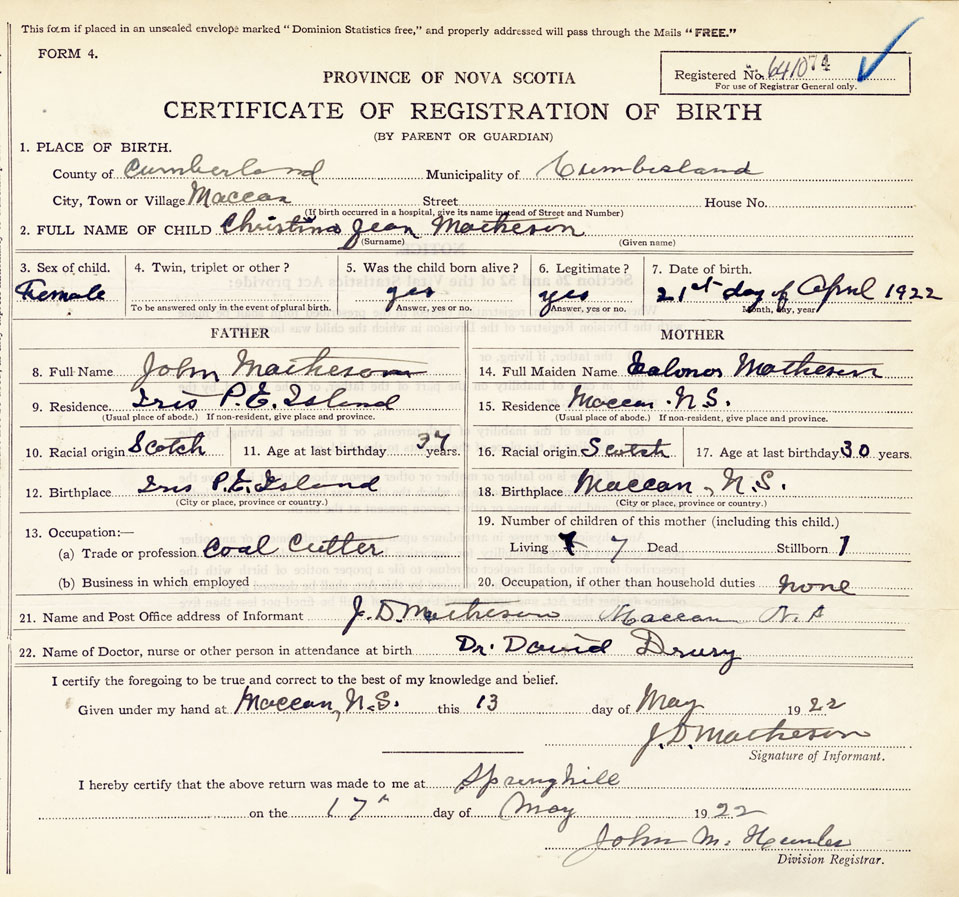 This form if placed in an unsealed envelope marked "Dominion Statistics free," and properly addressed will pass through the Mails "FREE."
FORM 4.
Registered No. 641074
For use of Registrar General only.
PROVINCE OF NOVA SCOTIA
CERTIFICATE OF REGISTRATION OF BIRTH
(BY PARENT OR GUARDIAN)
1. PLACE OF BIRTH.
County of Cumberland Municipality of Cumberland
City, Town or Village Maccan Street House No.
(If birth occurred in a hospital, give its name instead of Street and Number)
2. FULL NAME OF CHILD Christina Jean Matheson
(Surname) (Given name)
3. Sex of child. 4. Twin, triplet or other? 5. Was the child born alive? 6. Legitimate? 7. Date of birth.
Female yes yes 21st day of April 1922
To be answered only in the event of plural birth. Answer, yes or no. Answer, yes or no. Month, day, year
FATHER MOTHER
8. Full Name John Matheson 14. Full Maiden Name Matheson
9. Residence Iris P.E. Island 15. Residence Maccan N.S.
(Usual place of abode.) If non-resident, give place and province. (Usual place of abode.) If non-resident, give place and province.
10. Racial origin Scotch 11. Age at last birthday 37 years. 16. Racial origin Scotch 17. Age at last birthday 30 years.
12. Birthplace Iris P.E. Island 18. Birthplace Maccan, N.S.
(City or place, province or country.) (City or place, province or country.)
13. Occupation:— 19. Number of children of this mother (including this child.)
(a) Trade or profession Coal Cutter Living 7 Dead Stillborn 1
(b) Business in which employed 20. Occupation, if other than household duties none
21. Name and Post Office address of Informant J.D. Matheson Maccan N.S
22. Name of Doctor, nurse or other person in attendance at birth Dr. David Drury
I certify the foregoing to be true and correct to the best of my knowledge and belief.
Given under my hand at Maccan, N.S. this 13 day of May 1922
J.D. Matheson
Signature of Informant.
I hereby certify that the above return was made to me at Springhill
on the 17th day of May 1922
John M.
Division Registrar.